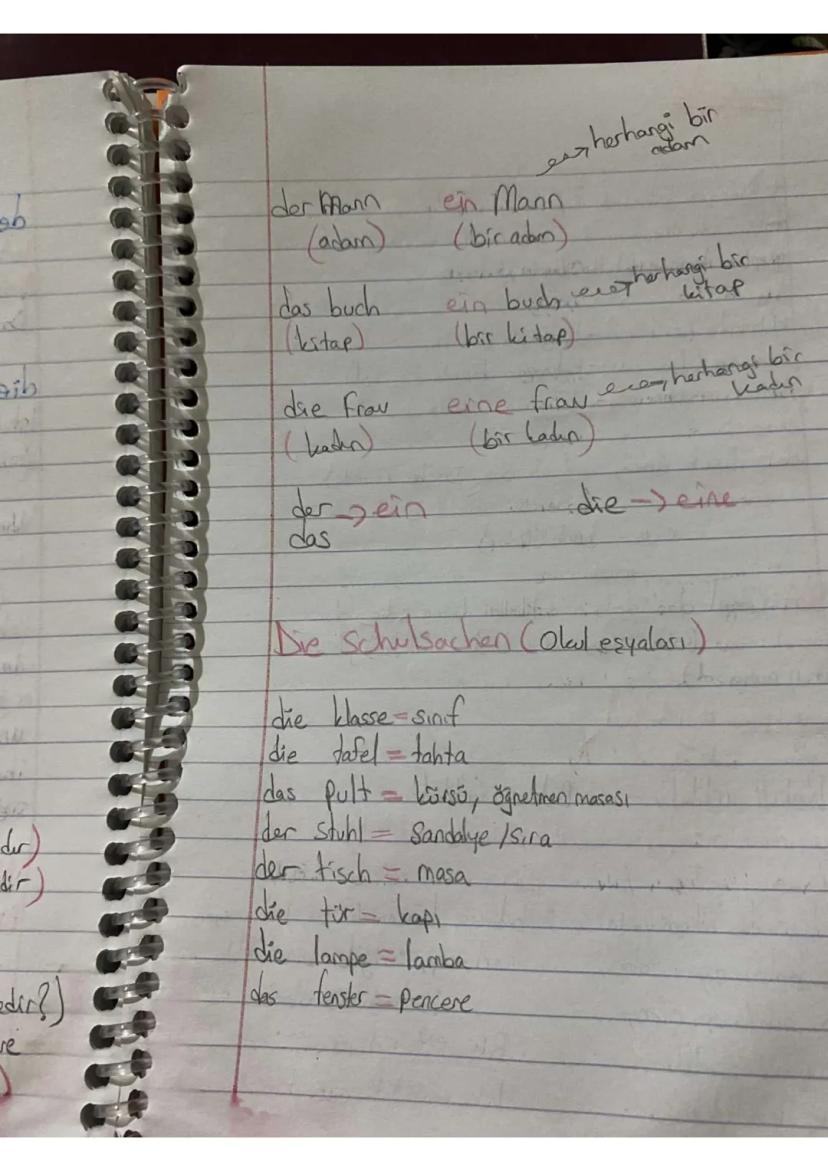 herhangi bir
adam
der Mann ein Mann
(adam) (bir adam)
das buch ein buch herhangi bir
kitap
(kitap) (bir kitap)
die frau eine frau herhangi bir
kadın
(kadın) (bir kadın)
der → ein die → eine
das
Die Schulsachen (Okul eşyaları)
die klasse = sınıf
die tafel = tahta
das pult = kürsü, öğretmen masası
der stuhl = sandalye / sıra
der tisch = masa
die tür = kapı
die lampe = lamba
das fenster = pencere
dır)
dir)
edir?)